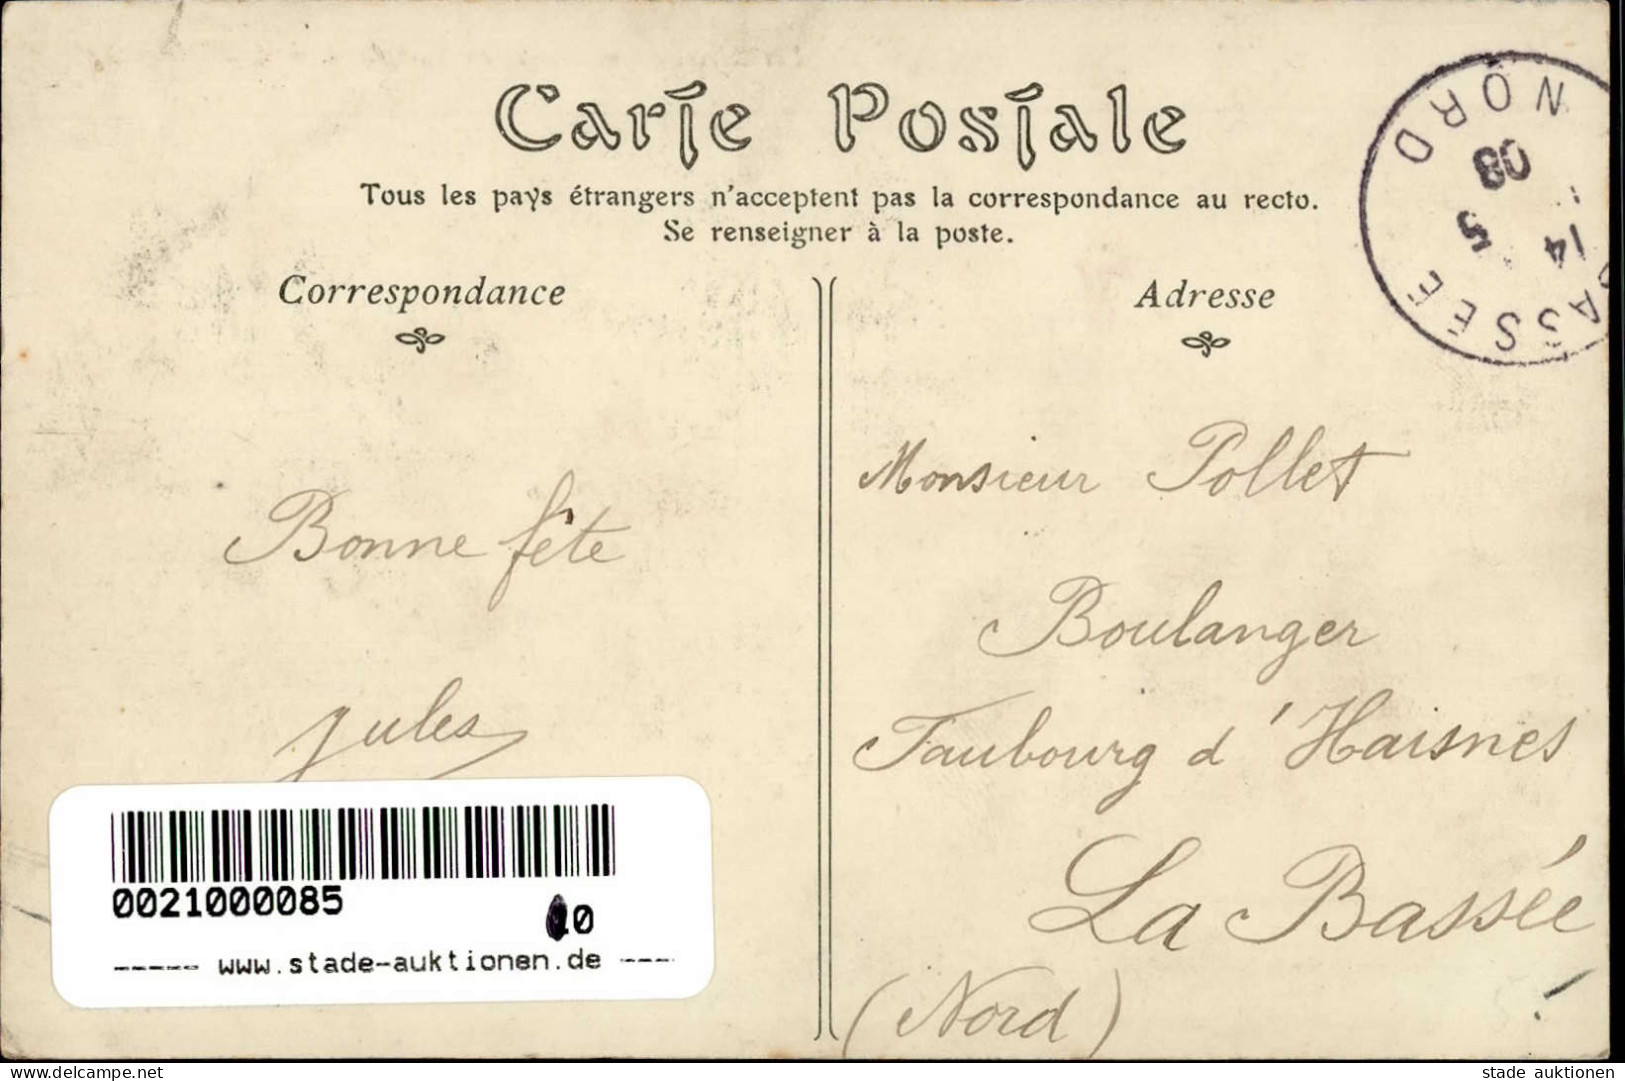 Carte Postale
Tous les pays étrangers n'acceptent pas la correspondance au recto.
Se renseigner à la poste.
Correspondance
Adresse
NORD
08
5
14
BASSÉE
Bonne fête
Jules
Monsieur Pollet
Boulanger
Faubourg d'Haisnes
La Bassée
(Nord)
0021000085
0
----- www.stade-auktionen.de ----
www.delcampe.net
stade auktionen